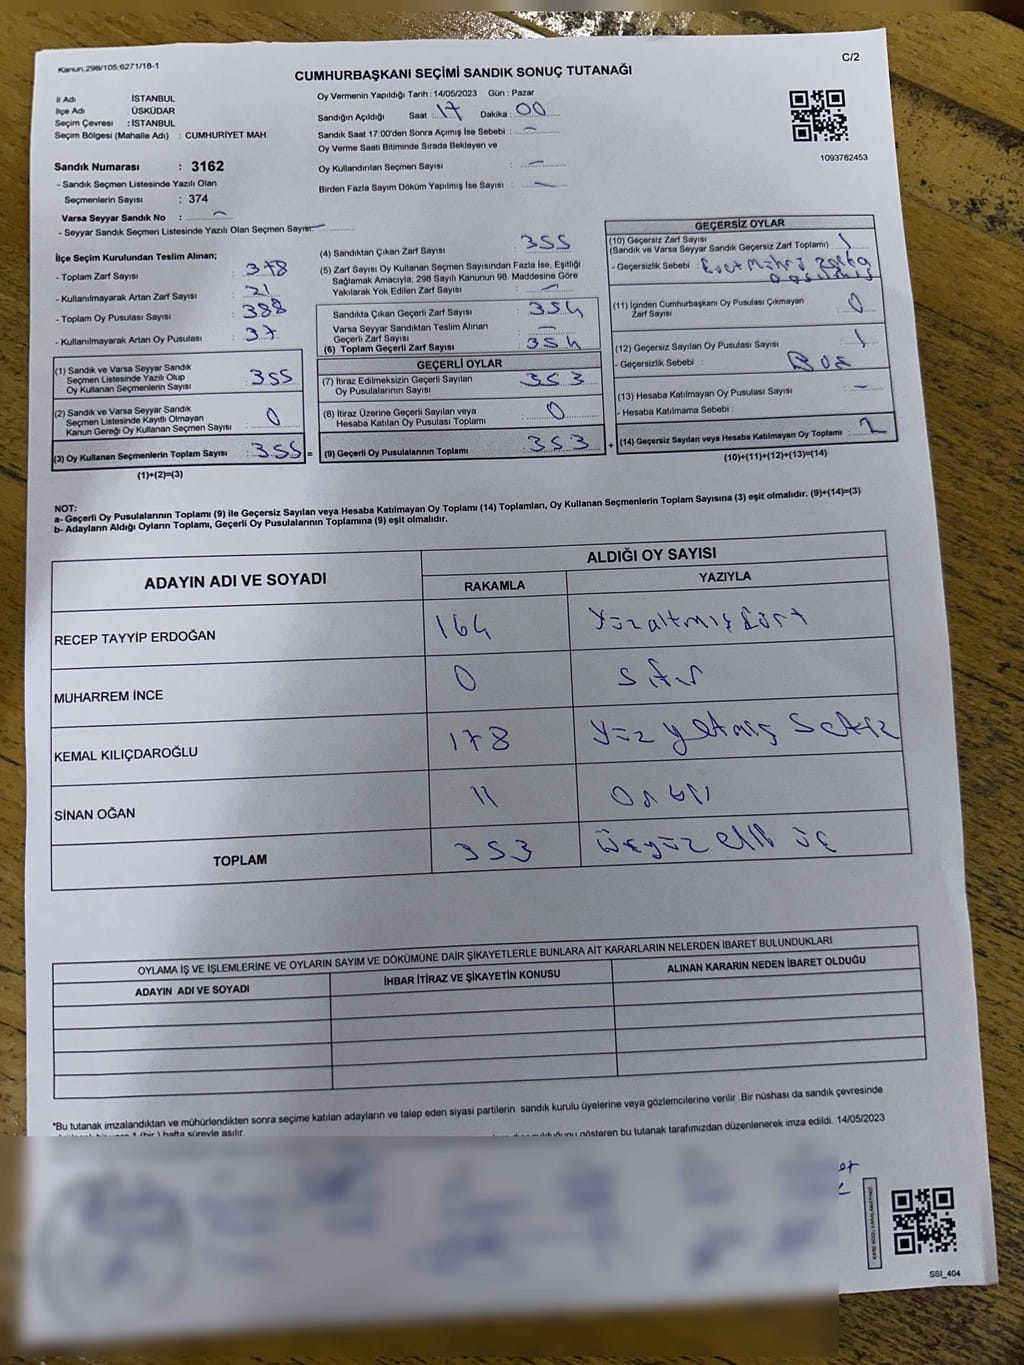 Kanun,298/105,6271/18-1
C/2
CUMHURBAŞKANI SEÇİMİ SANDIK SONUÇ TUTANAĞI
İl Adı : İSTANBUL
İlçe Adı : ÜSKÜDAR
Seçim Çevresi : İSTANBUL
Seçim Bölgesi (Mahalle Adı) : CUMHURİYET MAH
Oy Vermenin Yapıldığı Tarih : 14/05/2023 Gün : Pazar
Sandığın Açıldığı Saat : 17 Dakika : 00
Sandık Saat 17:00'den Sonra Açımış İse Sebebi : —
Oy Verme Saati Bitiminde Sırada Bekleyen ve
Oy Kullandırılan Seçmen Sayısı : —
Birden Fazla Sayım Döküm Yapılmış İse Sayısı : —
1093782453
Sandık Numarası : 3162
- Sandık Seçmen Listesinde Yazılı Olan
Seçmenlerin Sayısı : 374
Varsa Seyyar Sandık No : —
- Seyyar Sandık Seçmen Listesinde Yazılı Olan Seçmen Sayısı: —
İlçe Seçim Kurulundan Teslim Alınan;
- Toplam Zarf Sayısı : 378
- Kullanılmayarak Artan Zarf Sayısı : 21
- Toplam Oy Pusulası Sayısı : 388
- Kullanılmayarak Artan Oy Pusulası : 37
(1) Sandık ve Varsa Seyyar Sandık
Seçmen Listesinde Yazılı Olup
Oy Kullanan Seçmenlerin Sayısı : 355
(2) Sandık ve Varsa Seyyar Sandık
Seçmen Listesinde Kayıtlı Olmayan
Kanun Gereği Oy Kullanan Seçmen Sayısı : 0
(3) Oy Kullanan Seçmenlerin Toplam Sayısı : 355 =
(1)+(2)=(3)
(4) Sandıktan Çıkan Zarf Sayısı : 355
(5) Zarf Sayısı Oy Kullanan Seçmen Sayısından Fazla İse, Eşitliği
Sağlamak Amacıyla, 298 Sayılı Kanunun 98. Maddesine Göre
Yakılarak Yok Edilen Zarf Sayısı : —
Sandıkta Çıkan Geçerli Zarf Sayısı : 354
Varsa Seyyar Sandıktan Teslim Alınan
Geçerli Zarf Sayısı : —
(6) Toplam Geçerli Zarf Sayısı : 354
GEÇERLİ OYLAR
(7) İtiraz Edilmeksizin Geçerli Sayılan
Oy Pusulalarının Sayısı : 353
(8) İtiraz Üzerine Geçerli Sayılan veya
Hesaba Katılan Oy Pusulası Toplamı : 0
(9) Geçerli Oy Pusulalarının Toplamı : 353 +
GEÇERSİZ OYLAR
(10) Geçersiz Zarf Sayısı
(Sandık ve Varsa Seyyar Sandık Geçersiz Zarf Toplamı) : 1
- Geçersizlik Sebebi : Evet Mührü zarfa
(11) İçinden Cumhurbaşkanı Oy Pusulası Çıkmayan
Zarf Sayısı : 0
(12) Geçersiz Sayılan Oy Pusulası Sayısı : 1
- Geçersizlik Sebebi : Boş
(13) Hesaba Katılmayan Oy Pusulası Sayısı : —
- Hesaba Katılmama Sebebi :
(14) Geçersiz Sayılan veya Hesaba Katılmayan Oy Toplamı : 2
(10)+(11)+(12)+(13)=(14)
NOT:
a- Geçerli Oy Pusulalarının Toplamı (9) ile Geçersiz Sayılan veya Hesaba Katılmayan Oy Toplamı (14) Toplamları, Oy Kullanan Seçmenlerin Toplam Sayısına (3) eşit olmalıdır. (9)+(14)=(3)
b- Adayların Aldığı Oyların Toplamı, Geçerli Oy Pusulalarının Toplamına (9) eşit olmalıdır.
ADAYIN ADI VE SOYADI
ALDIĞI OY SAYISI
RAKAMLA YAZIYLA
RECEP TAYYİP ERDOĞAN 164 Yüzaltmış dört
MUHARREM İNCE 0 Sıfır
KEMAL KILIÇDAROĞLU 178 Yüz yetmiş Sekiz
SİNAN OĞAN 11 On bir
TOPLAM 353 üçyüz elli üç
OYLAMA İŞ VE İŞLEMLERİNE VE OYLARIN SAYIM VE DÖKÜMÜNE DAİR ŞİKAYETLERLE BUNLARA AİT KARARLARIN NELERDEN İBARET BULUNDUKLARI
ADAYIN ADI VE SOYADI İHBAR İTİRAZ VE ŞİKAYETİN KONUSU ALINAN KARARIN NEDEN İBARET OLDUĞU
*Bu tutanak imzalandıktan ve mühürlendikten sonra seçime katılan adayların ve talep eden siyasi partilerin sandık kurulu üyelerine veya gözlemcilerine verilir .Bir nüshası da sandık çevresinde
1 (bir ) hafta süreyle asılır.
gösteren bu tutanak tarafımızdan düzenlenerek imza edildi. 14/05/2023
SSI_404